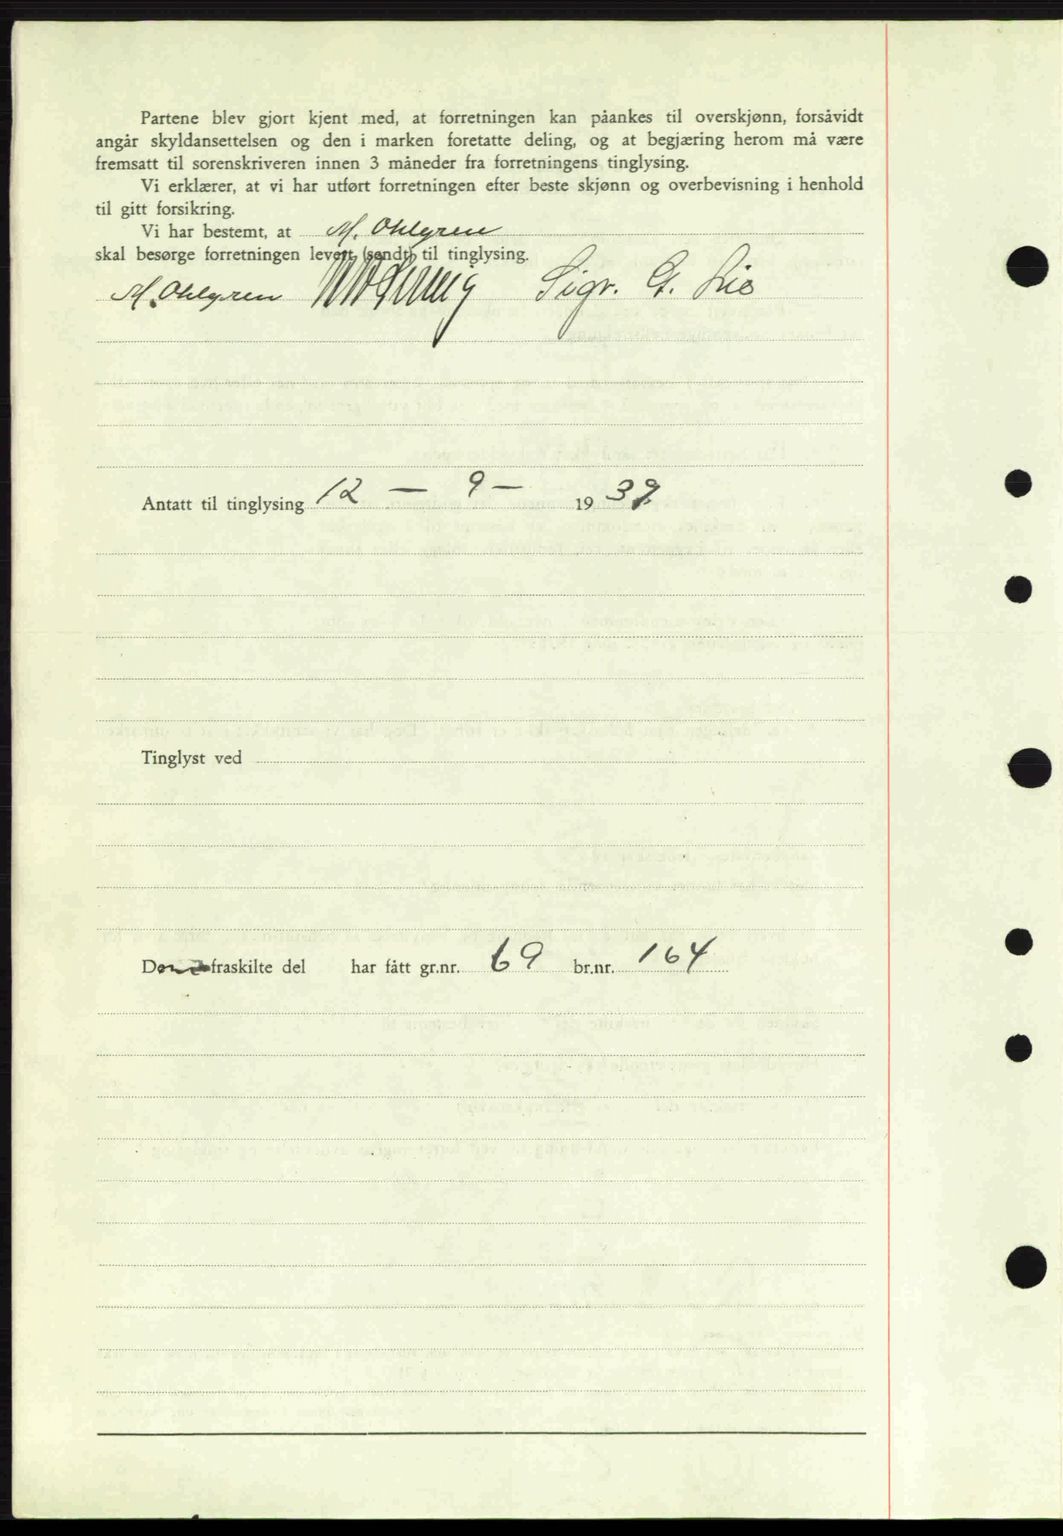 Partene blev gjort kjent med, at forretningen kan påankes til overskjønn, forsåvidt
angår skyldansettelsen og den i marken foretatte deling, og at begjæring herom må være
fremsatt til sorenskriveren innen 3 måneder fra forretningens tinglysing.
Vi erklærer, at vi har utført forretningen efter beste skjønn og overbevisning i henhold
til gitt forsikring.
Vi har bestemt, at M. Ohlgren
skal besørge forretningen levert (sendt) til tinglysing.
M. Ohlgren Sigv. G. Lie
Antatt til tinglysing 12 – 9 – 1939
Tinglyst ved
Den fraskilte del har fått gr.nr. 69 br.nr. 164